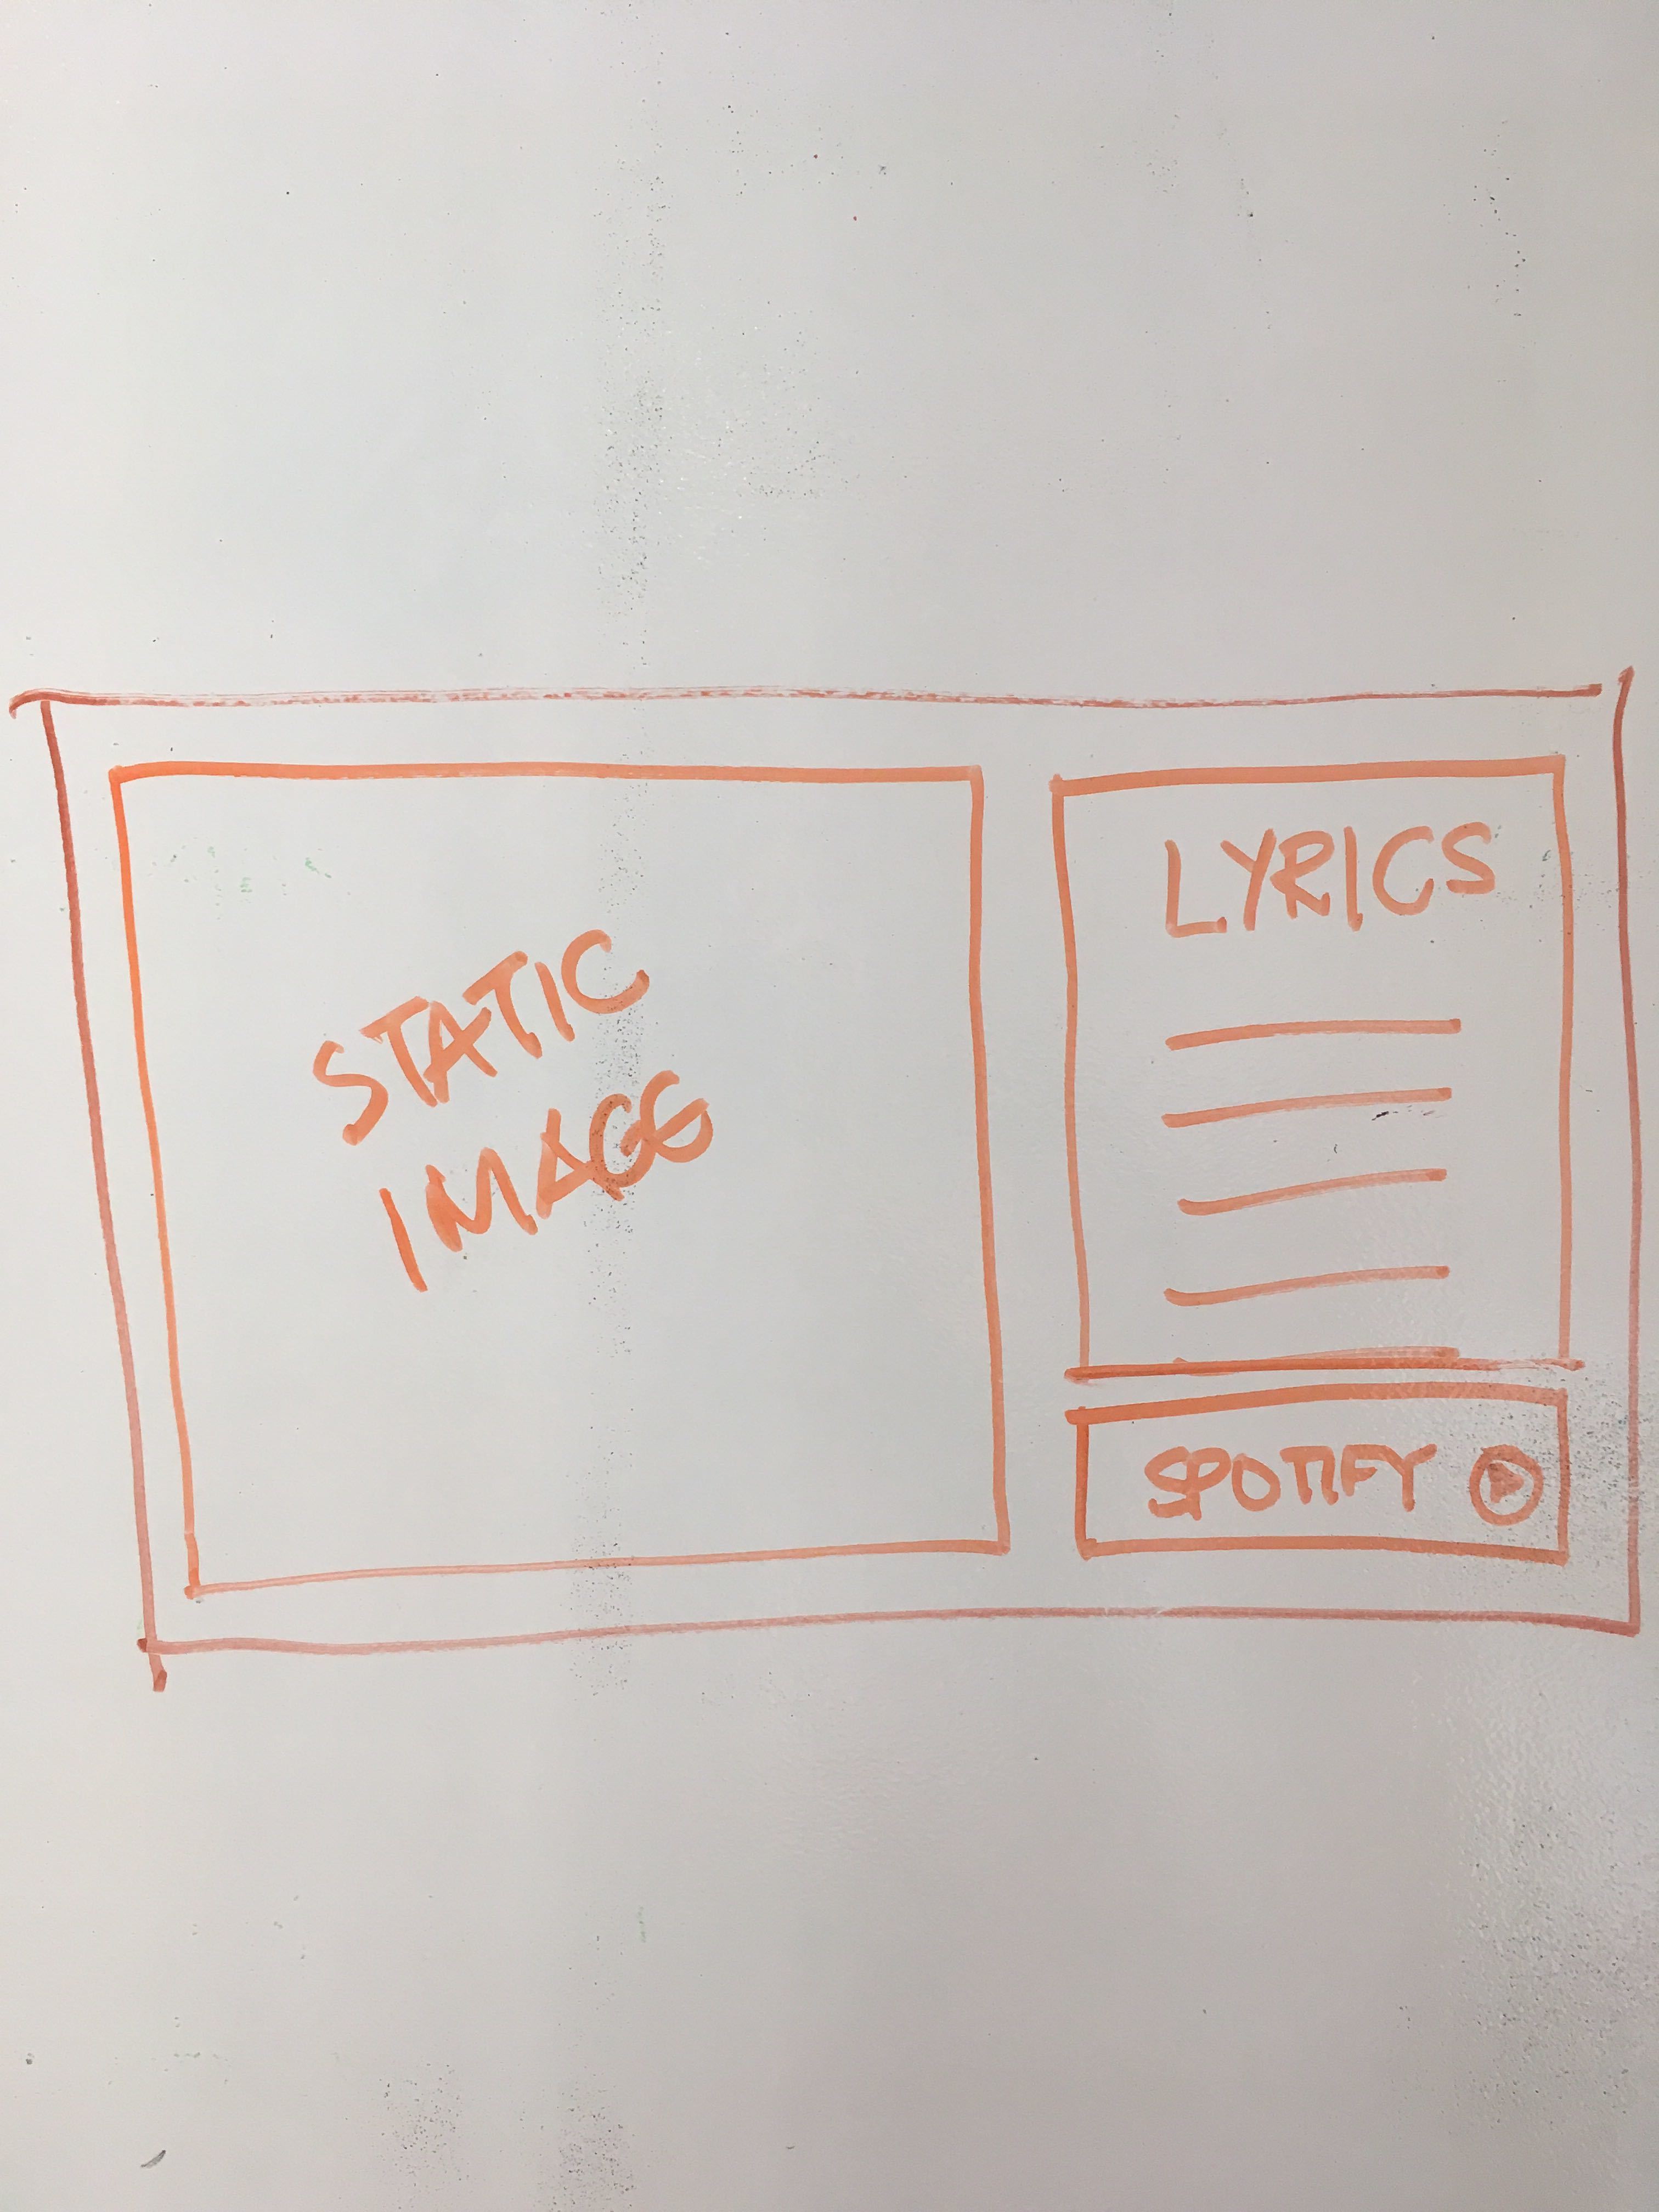 STATIC
IMAGE
LYRICS
SPOTIFY